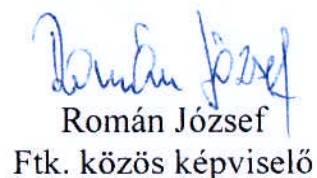 Román József
Román József
Ftk. közös képviselő